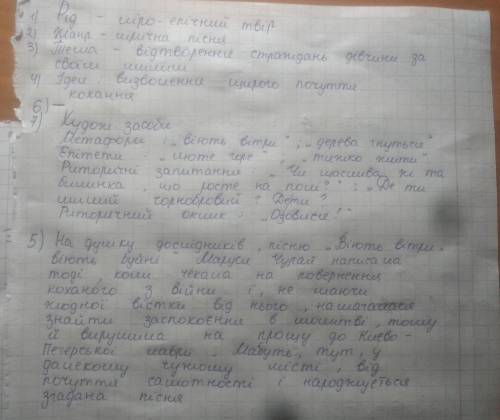 1) Рід - ліро-епічний твір
2) Жанр - лірична пісня
3) Тема - відтворення страждань дівчини за
своїм милим
4) Ідея : визволення щирого почуття
кохання
6) —
7) Художні засоби
Метафори : „віють вітри“ ; „дерева гнуться“
Епітети : „люте горе“ , „тяжко жити“
Риторичні запитання : „Чи щаслива ж та
билинка , що росте на полі?“ ; „Де ти
милий чорнобривий ? Де ти?“
Риторичний оклик : „Озовися!“
5) На думку дослідників , пісню „Віють вітри ,
віють буйні“ Маруся Чурай написала
тоді , коли чекала на повернення
коханого з війни і , не маючи
жодної вістки від нього , намагалася
знайти заспокоєння в молитві , тому
й вирушила на прощу до Києво-
Печерської лаври . Мабуть , тут , у
далекому чужому місті , від
почуття самотності і народжується
згадана пісня